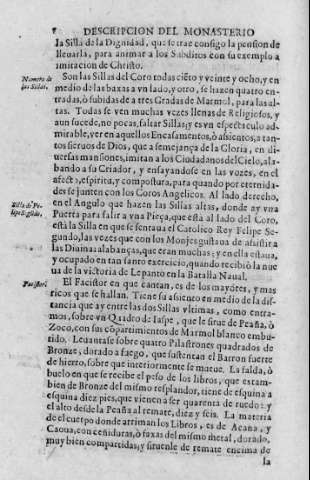 8 DESCRIPCION DEL MONASTERIO
la Silla de la Dignidad, que trae consigo la pension de
lleuarla, para animar a los Subditos con su exemplo a
imitacion de Christo.
Numero de las Sillas.
Son las Sillas del Coro todas ciēto y veinte y ocho, y en
medio de las baxas a vn lado, y otro, se hazen quatro en-
tradas, ò subidas de a tres Gradas de Marmol, para las al-
tas. Todas se ven muchas vezes llenas de Religiosos, y
aun sucede, no pocas, faltar Sillas; y es vn espectaculo ad-
mirable, ver en aquellos Encasamentos, ò asientos, a tan-
tos sieruos de Dios, que a semejança de la Gloria, en di-
uersas mansiones, imitan a los Ciudadanos del Cielo, ala-
bando a su Criador, y ensayandose en las vozes, en el
afecto, espiritu, y compostura, para quando por eternida-
des se junten con los Coros Angelicos. Al lado derecho,
Silla de Felipe Segūdo.
en el Angulo que hazen las Sillas altas, donde ay vna
Puerta para salir a vna Pieça, que està al lado del Coro,
està la Silla en que se sentaua el Catolico Rey Felipe Se-
gundo, las vezes que con los Monjes gustaua de assistir a
las Diuinas alabanças, que eran muchas; y en ella estaua,
y ocupado en tan santo exercicio, quando recibiò la nue
ua de la victoria de Lepanto en la Batalla Naual.
Facistor.
El Facistor en que cantan, es de los mayores, y mas
ricos que se hallan. Tiene su asiento en medio de la dis-
tancia que ay entre las dos Sillas vltimas, como entra-
mos, sobre vn Quadro de Iaspe, que le sirue de Peaña, ò
Zoco, con sus cōpartimientos de Marmol blanco embu-
tido. Leuantase sobre quatro Pilastrones quadrados de
Bronze, dorado a fuego, que sustentan el Barron fuerte
de hierro, sobre que interiormente se mueue. La falda, ò
buelo en que se recibe el peso de los libros, que es tam-
bien de Bronze del mismo resplandor, tiene de esquina a
esquina diez pies, que vienen a ser quarenta de ruedo: y
el alto desde la Peaña al remate, diez y seis. La materia
de el cuerpo donde arriman los Libros, es de Acana, y
Caoua, con ceñiduras, ò faxas del mismo metal, dorado,
muy bien compartidas, y siruele de remate encima de
la